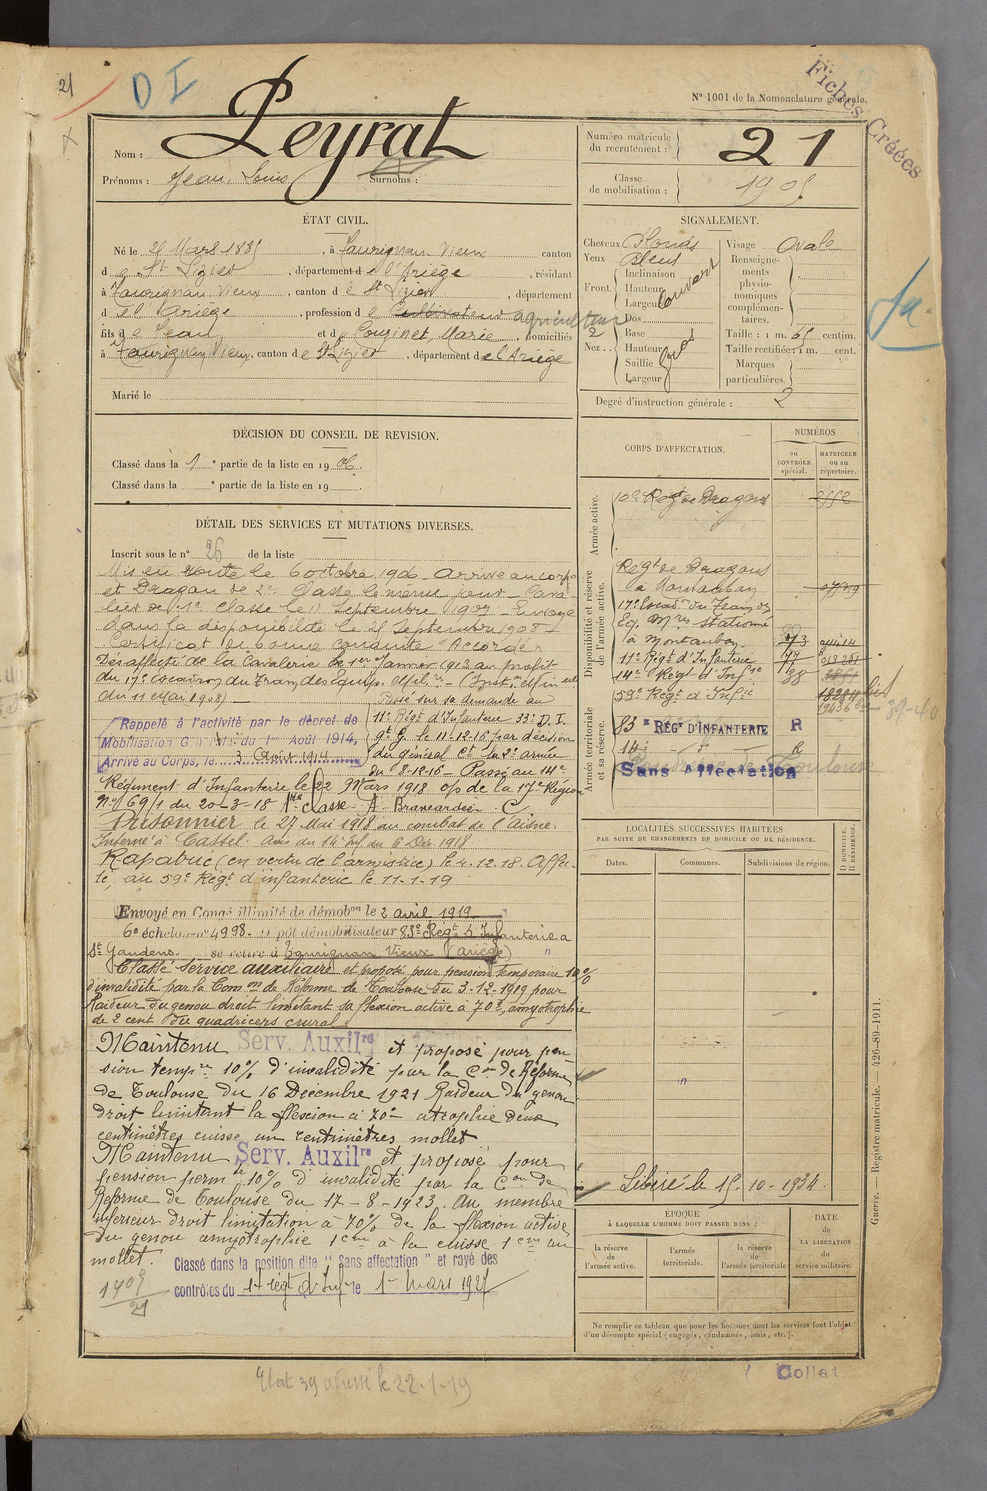 21
D I
Fiches Créées
N° 1001 de la Nomenclature générale.
Nom : Peyrat
Prénoms : Jean, Louis Surnoms :
Numéro matricule du recrutement : 21
Classe de mobilisation : 1905
ÉTAT CIVIL.
Né le 25 Mars 1885, à Taurignan-Vieux canton
de St Lizier, département de l'Ariège, résidant
à Taurignan-Vieux, canton de St Lizier, département
de l'Ariège, profession de Cultivateur agriculteur
fils de Jean et de Couzinet, Marie, domiciliés
à Taurignan Vieux, canton de St Lizier, département de l'Ariège
Marié le
SIGNALEMENT.
Cheveux Blonds
Yeux Bleus
Front. Inclinaison
Hauteur
Largeur
Couvert
Nez . . Dos 2
Base
Hauteur
Saillie
Largeur
Gros
Visage Ovale
Renseignements physionomiques complémentaires.
Taille : 1 m. 65 centim.
Taille rectifiée : 1 m. cent.
Marques particulières
Degré d'instruction générale : 2
DÉCISION DU CONSEIL DE REVISION.
Classé dans la 1e partie de la liste en 1906.
Classé dans la e partie de la liste en 19 .
DÉTAIL DES SERVICES ET MUTATIONS DIVERSES.
Inscrit sous le n° 26 de la liste
Mis en route le 6 octobre 1906 - Arrivé au corps
et Dragon de 2e Classe le même jour - Cava-
lier de 1e classe le 11 Septembre 1907 - Envoyé
dans la disponibilité le 25 Septembre 1908 -
Certificat de bonne conduite "Accordé"
Désaffecté de la Cavalerie le 1er Janvier 1913 au profit
du 17e Escadron du Train des Equip. Milres - (Inst. min elle
du 11 Mai 1908)
Rappelé à l'activité par le décret de
Mobilisation Générale du 1er Août 1914,
Arrivé au Corps, le 3 Août 1914
Passé sur sa demande au
11e Régt d'Infanterie 33e D. I.
le 11-12-16 par décision
du général Ct la 2e armée
du 8-12-16 - Passé au 14e
Régiment d'Infanterie le 22 Mars 1918 o/s de la 17e Région
n° 69/1 du 20-3-18 1re classe A Brancardier C
Prisonnier le 27 Mai 1918 au combat de l'Aisne.
Interné à Cassel. avis du 14e du 6 Déc. 1918
Rapatrié (en vertu de l'armistice) le 4.12.18. Affec-
té, au 59e Régt d'infanterie le 11-1-19
Envoyé en Congé illimité de démobon le 2 avril 1919
6e échelon n° 4998. Dépôt démobilisateur 83e Régt d'Infanterie à
St Gaudens. se retire à Taurignan Vieux (Ariège)
Classé service auxiliaire et proposé pour pension temporaire 10%
d'invalidité par la Comon de Réforme de Toulouse du 3-12-1919 pour
Raideur du genou droit limitant sa flexion active à 70°, amyotrophie
de 2 cent du quadriceps crural.
Maintenu Serv. Auxilre et proposé pour pen-
sion tempre 10% d'invalidité par la Con de Réforme
de Toulouse du 16 Décembre 1921 Raideur du genou
droit limitant la flexion à 70° atrophie deux
centimètres cuisse un centimètres mollet
Maintenu Serv. Auxilre et proposé pour
pension permte 10% d'invalidité par la Con de
Réforme de Toulouse du 17-8-1923. Au membre
inférieur droit limitation à 70% de la flexion active
du genou amyotrophie 1cm à la cuisse 1cm au
mollet.
Classé dans la position dite "Sans affectation" et rayé des
contrôles du 14e régt d'Infie le 1er mars 1927
1905
21
CORPS D'AFFECTATION.
NUMÉROS
au CONTRÔLE spécial.
MATRICULE ou au répertoire.
Armée active.
10e Régt de Dragons
Disponibilité et réserve de l'armée active.
Régt de Dragons
à Montauban
17e Escadon du Train des
Eq. Mres stationné
à Montauban
11e Régt d'Infanterie
14e Régt d'Infie
59e Régt d'Infie
Armée territoriale et sa réserve.
83e RÉGt D'INFANTERIE R
14e - do - R
Sans affectation
39-40
LOCALITÉS SUCCESSIVES HABITÉES
PAR SUITE DE CHANGEMENTS DE DOMICILE OU DE RÉSIDENCE.
D DOMICILE.
R RÉSIDENCE.
Dates.
Communes.
Subdivisions de région.
Libéré le 15-10-1934
ÉPOQUE
À LAQUELLE L'HOMME DOIT PASSER DANS :
la réserve de l'armée active.
l'armée territoriale.
la réserve de l'armée territoriale
DATE de LA LIBÉRATION du service militaire.
Ne remplir ce tableau que pour les hommes dont les services font l'objet
d'un décompte spécial (engagés, condamnés, omis, etc.).
Guerre. — Registre matricule. — 426-89-1911.
Collat
Etat 39 adressé le 22-1-19